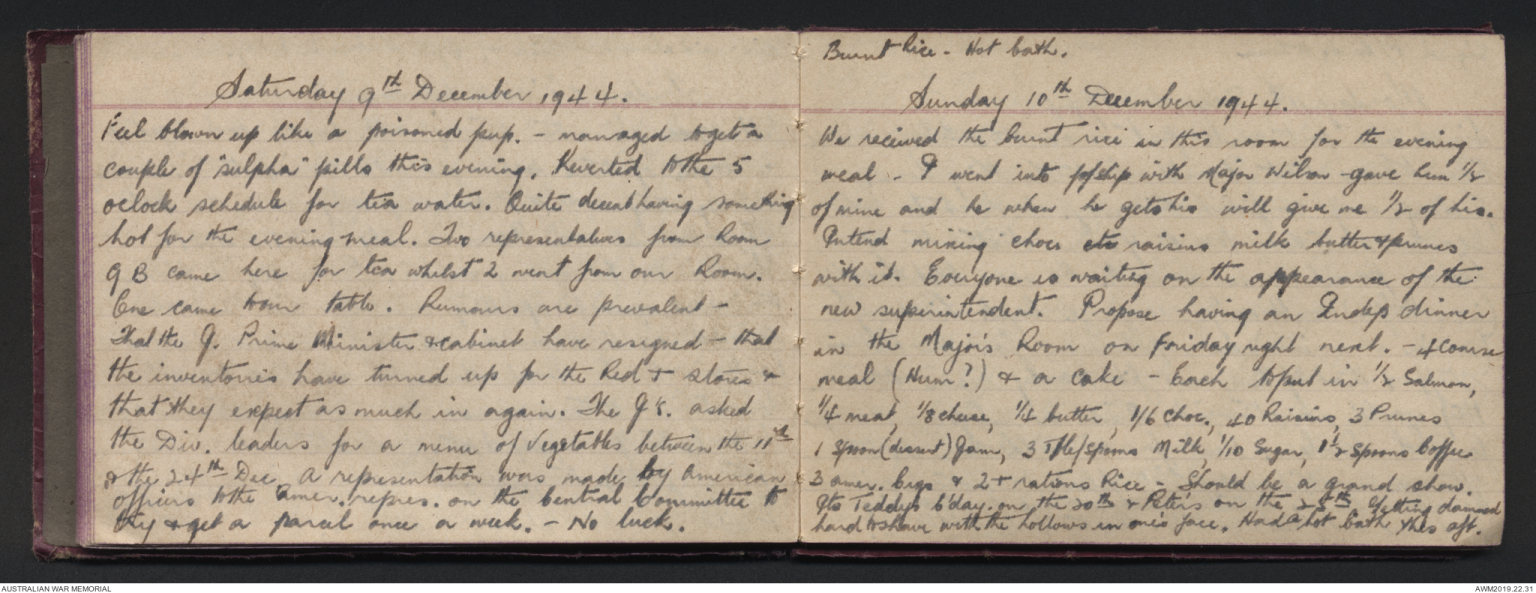 Saturday 9th December 1944.
Feel blown up like a poisoned pup. - managed to get a
couple of "sulpha" pills this evening. Reverted to the 5
oclock schedule for tea water. Quite decent having something
hot for the evening meal. Two representatives from Room
9 B came here for tea whilst 2 went from our Room.
One came to our table. Rumours are prevalent -
That the J. Prime Minister & cabinet have resigned - that
the inventories have turned up for the Red + stores &
that they expect as much in again. The Js. asked
the Div. leaders for a menu of vegetables between the 11th
& the 24th Dec. A representation was made by American
officers to the Amer. repres. on the Central Committee to
try & get a parcel once a week. - No luck.
Burnt Rice - Hot bath.
Sunday 10th December 1944.
We received the burnt rice in this room for the evening
meal - I went into p/ship with Major Wilson - gave him 1/2
of mine and he when he gets his will give me 1/2 of his.
Intend mixing choc etc raisins milk butter & prunes
with it. Everyone is waiting on the appearance of the
new superintendent. Propose having an Indep dinner
in the Major's Room on Friday night next. - 4 course
meal (Hum?) & a cake - Each to put in 1/2 Salmon,
1/4 meat, 1/8 cheese, 1/4 butter, 1/6 Choc., 40 Raisins, 3 Prunes
1 Spoon (dessert) Jam, 3 Tble/spoons Milk 1/10 Sugar, 1 1/2 Spoons Coffee
3 amer. Cigs & 2 + rations Rice - Should be a grand show.
Its Teddy's b'day. on the 20th & Peter's on the 25th Getting damned
hard to shave with the hollows in one's face. Had a hot bath this aft.
AUSTRALIAN WAR MEMORIAL
AWM2019.22.31